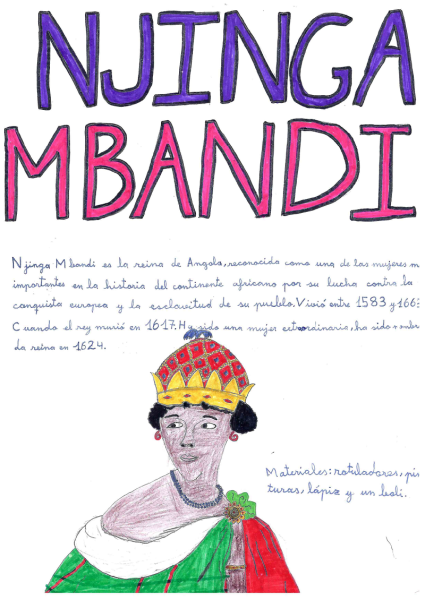 NJINGA
MBANDI
Njinga Mbandi es la reina de Angola, reconocida como una de las mujeres m
importantes en la historia del continente africano por su lucha contra la
conquista europea y la esclavitud de su pueblo. Vivió entre 1583 y 166
Cuando el rey murió en 1617. Ha sido una mujer extraordinaria, ha sido nombr
da reina en 1624.
Materiales: rotuladores, pin
turas, lápiz y un boli.